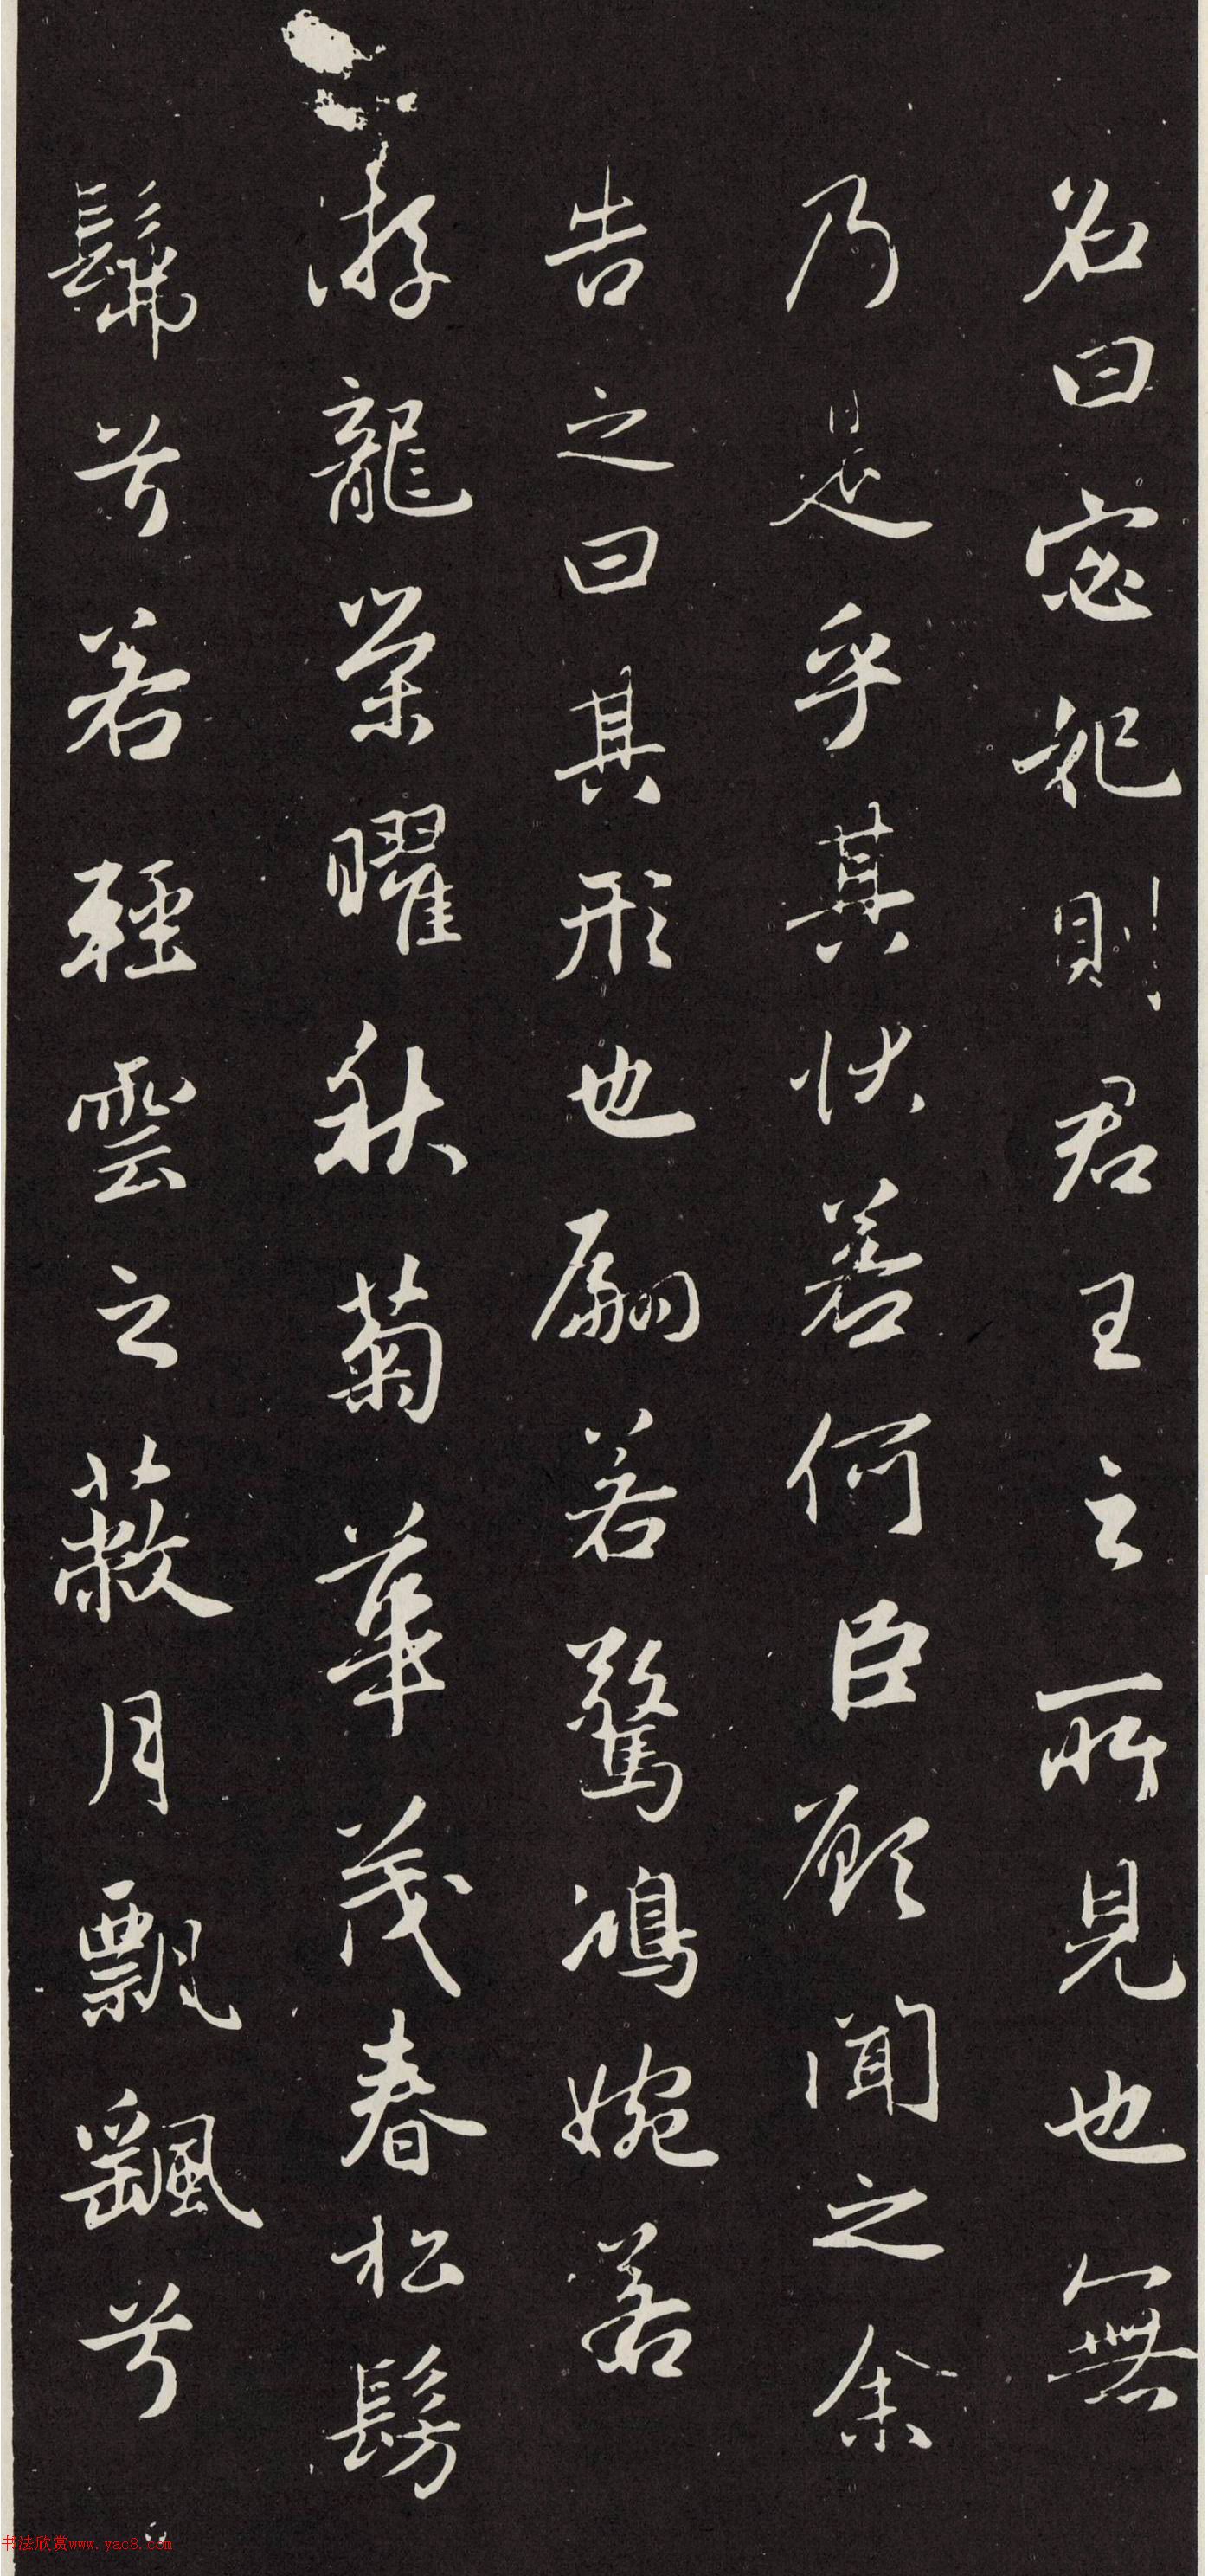 名曰宓妃則君王之所見也無
乃是乎其狀若何臣願聞之余
告之曰其形也翩若驚鴻婉若
游龍榮曜秋菊華茂春松髣
髴兮若輕雲之蔽月飄颻兮
书法欣赏www.yac8.com